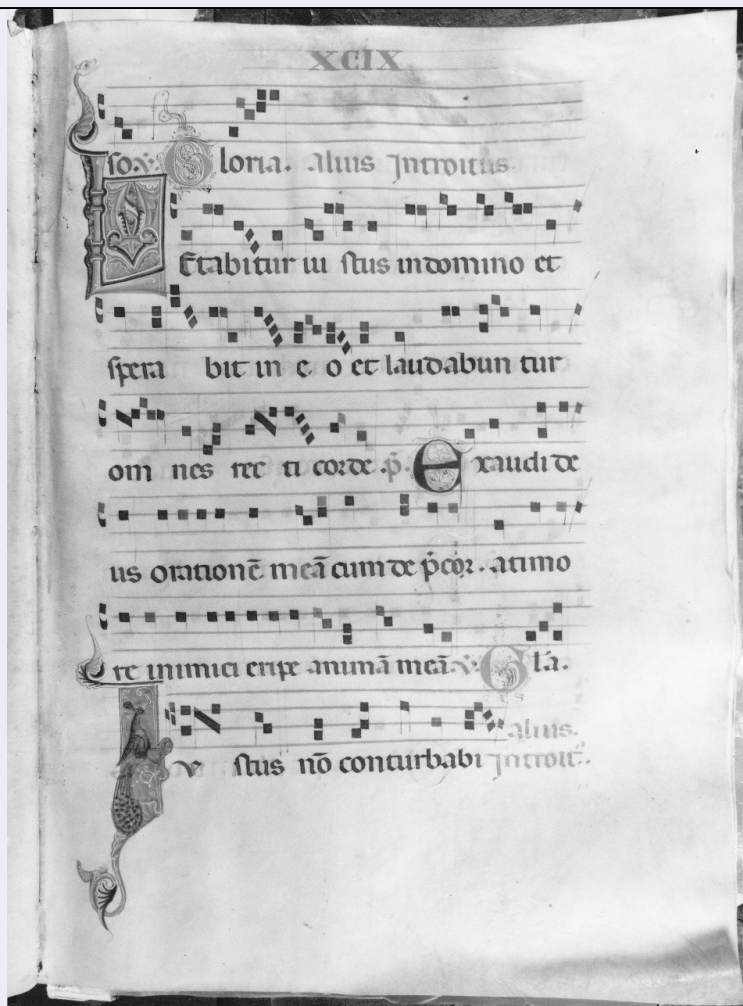 XCIX
so. ℣. Gloria. Alius Introitus.
LEtabitur iu stus in domino et
spera bit in e o et laudabun tur
om nes rec ti corde p̄. Exaudi de
us orationē meā cum de p̄cor. a timo
re inimici eripe animā meā. ℣. Gła.
Iv stus nō conturbabi alius.
Introit᷒.